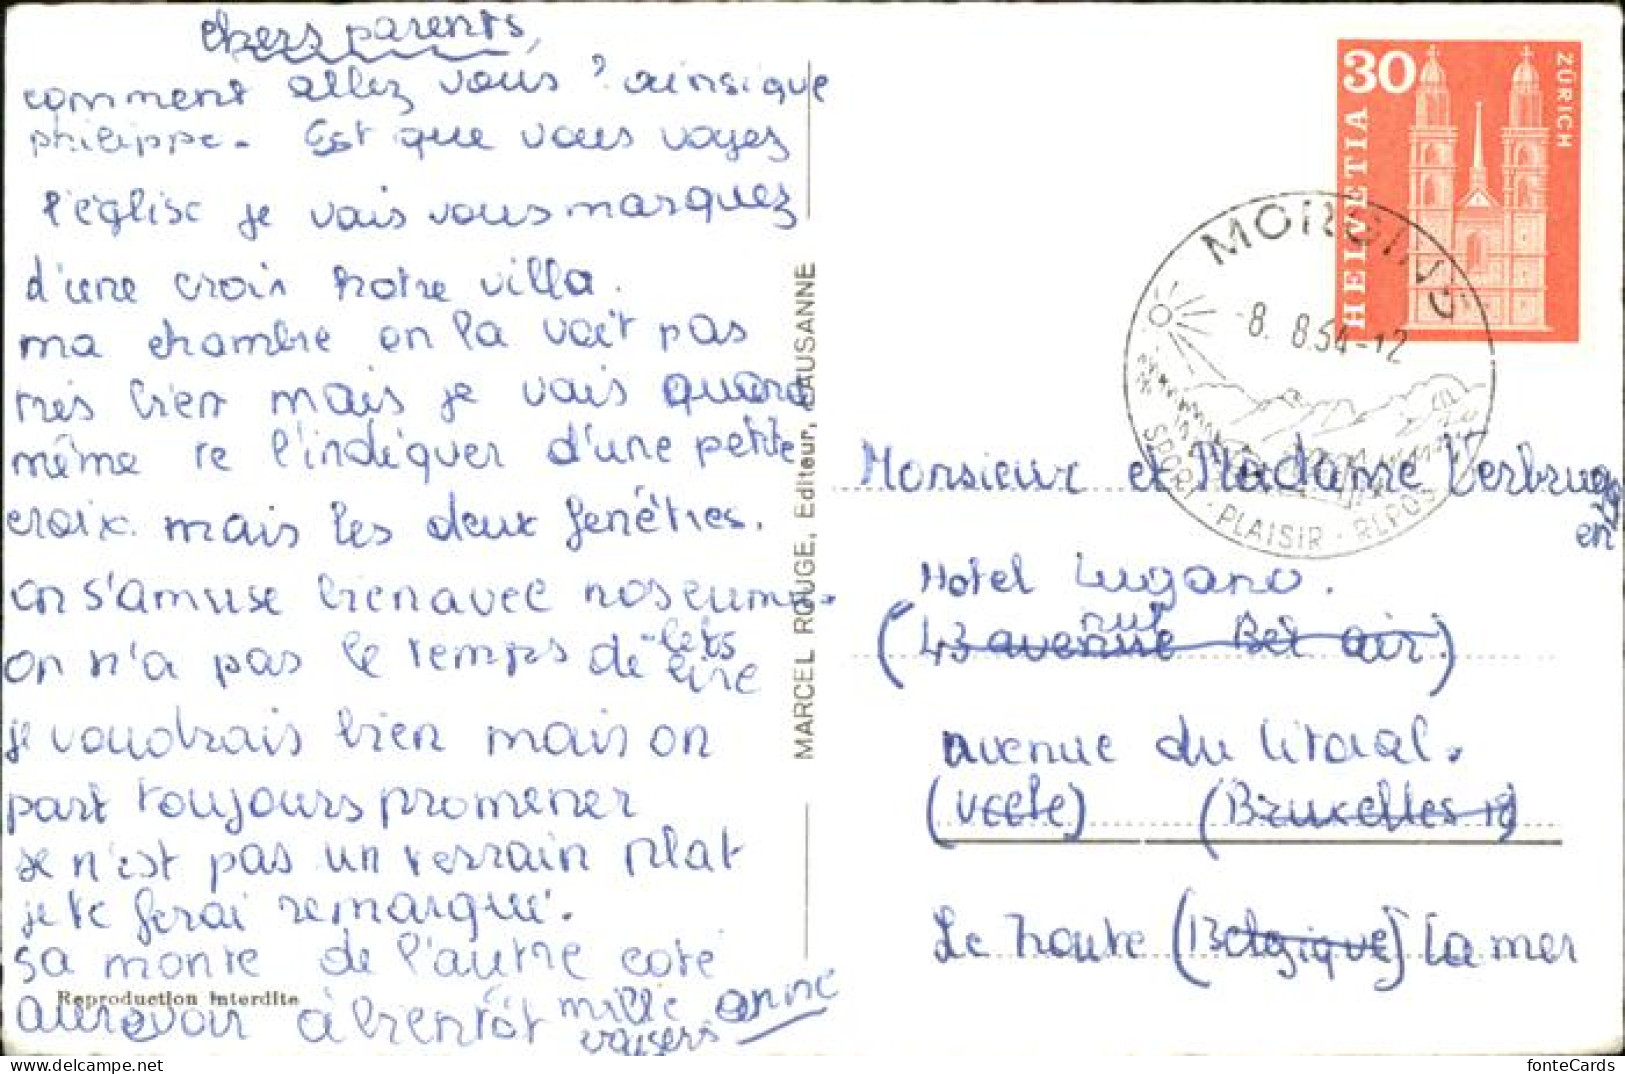 chers parents,
comment allez vous? ainsi que
philippe. Est que vous voyez
l'église je vais vous marquez
d'une croix notre villa.
ma chambre on la voit pas
très bien mais je vais quand
même te l'indiquer d'une petite
croix. mais les deux fenêtres.
on s'amuse bien avec nos
on n'a pas le temps de les
lire
je voudrais bien mais on
part toujours promener
se n'est pas un terrain plat
je te ferai remarqué.
sa monte de l'autre coté
aurevoir à bientôt mille
anne
Reproduction interdite
MARCEL ROUGE, Editeur, LAUSANNE
30
HELVETIA
ZÜRICH
MORGINS
-8. 8.64-12
SPORT · PLAISIR · REPOS
Monsieur et Madame Verbrug
en
Hotel Lugano.
(43 avenue Bel air)
nul
avenue du litoral.
(Uccle) (Bruxelles 18)
Le Zoute (Belgique) La mer
fonteCards